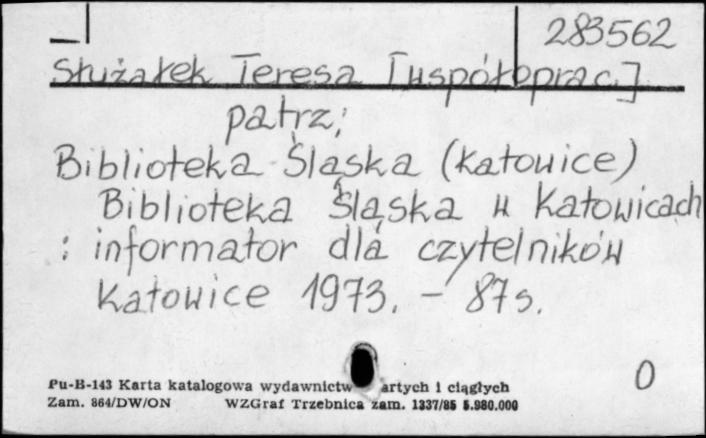 283562
Służałek Teresa [współoprac.]
patrz:
Biblioteka Śląska (Katowice)
Biblioteka Śląska w Katowicach
: informator dla czytelników
Katowice 1973. - 87 s.
0
Pu-B-143 Karta katalogowa wydawnictw artych i ciągłych
Zam. 864/DW/ON WZGraf Trzebnica zam. 1337/85 5.980.000